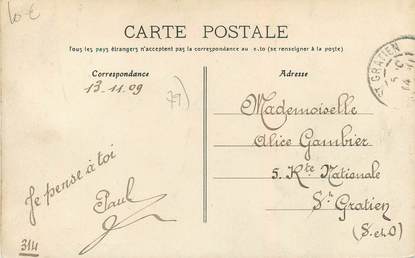 10 €
CARTE POSTALE
Tous les pays étrangers n'acceptent pas la correspondance au (se renseigner à la poste)
Correspondance
Adresse
13.11.09
ST GRATIEN
Mademoiselle
Alice Gambier
5. Rte Nationale
St Gratien
(S.et.O)
Je pense à toi
Paul
314